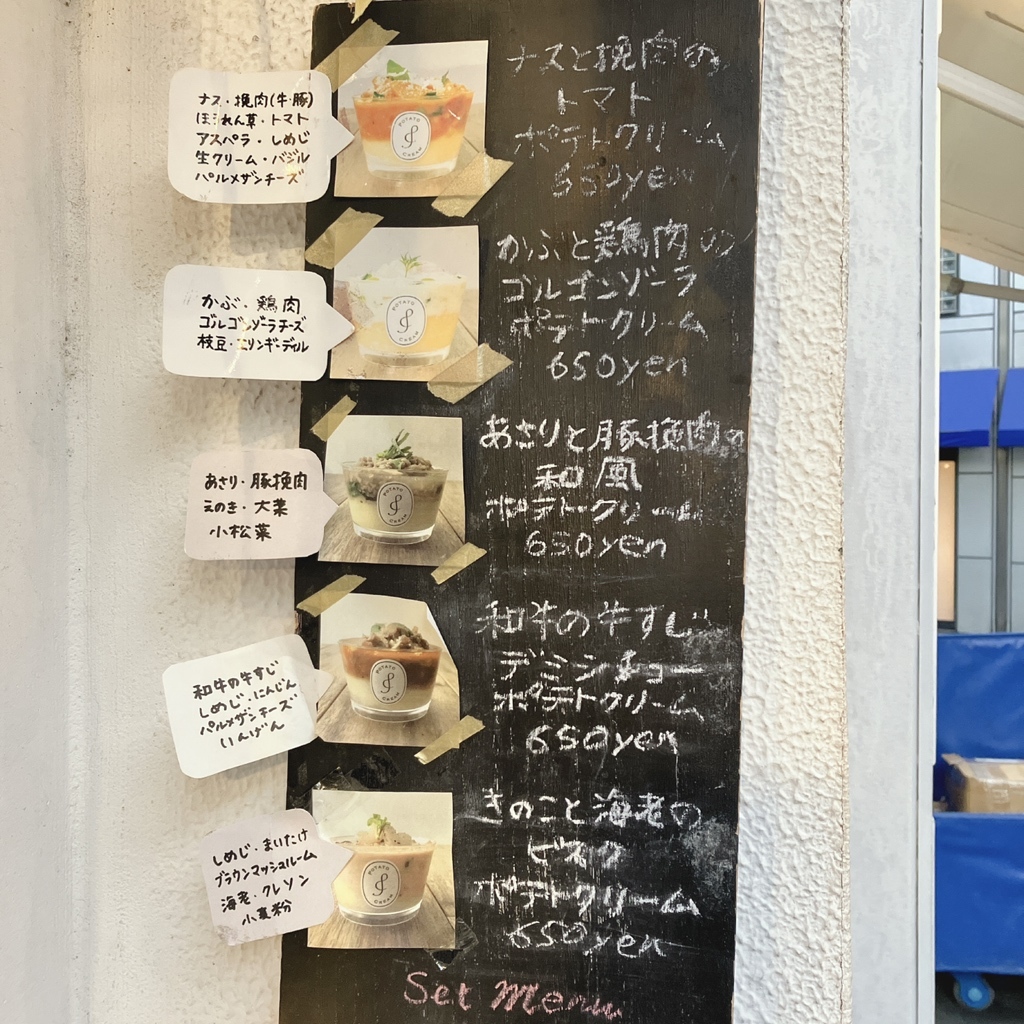 ナス・挽肉(牛・豚)
ほうれん草・トマト
アスパラ・しめじ
生クリーム・バジル
パルメザンチーズ
POTATO
CREAM
ナスと挽肉の
トマト
ポテトクリーム
650yen
かぶ・鶏肉
ゴルゴンゾーラチーズ
枝豆・エリンギ・ディル
POTATO
CREAM
かぶと鶏肉の
ゴルゴンゾーラ
ポテトクリーム
650yen
あさり・豚挽肉
えのき・大葉
小松菜
POTATO
CREAM
あさりと豚挽肉の
和風
ポテトクリーム
650yen
和牛の牛すじ
しめじ・にんじん
パルメザンチーズ
いんげん
POTATO
CREAM
和牛の牛すじ
デミシチュー
ポテトクリーム
650yen
しめじ・まいたけ
ブラウンマッシュルーム
海老・クレソン
小麦粉
POTATO
CREAM
きのこと海老の
ビスク
ポテトクリーム
650yen
Set Menu